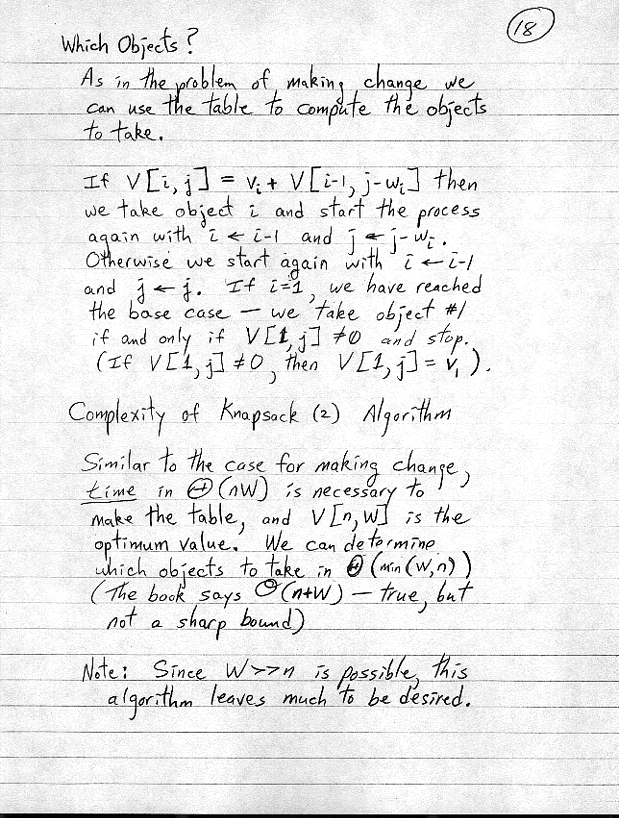 18
Which Objects?
As in the problem of making change we
can use the table to compute the objects
to take.
If V[i,j] = vᵢ + V[i-1, j-wᵢ] then
we take object i and start the process
again with i ← i-1 and j ← j-wᵢ.
Otherwise we start again with i ← i-1
and j ← j. If i=1, we have reached
the base case — we take object #1
if and only if V[1,j] ≠0 and stop.
(If V[1,j] ≠0, then V[1,j] = v₁).
Complexity of Knapsack (2) Algorithm
Similar to the case for making change,
time in Θ(nW) is necessary to
make the table, and V[n,W] is the
optimum value. We can determine
which objects to take in Θ(min(W,n))
(The book says O(n+W) — true, but
not a sharp bound)
Note: Since W>>n is possible, this
algorithm leaves much to be desired.